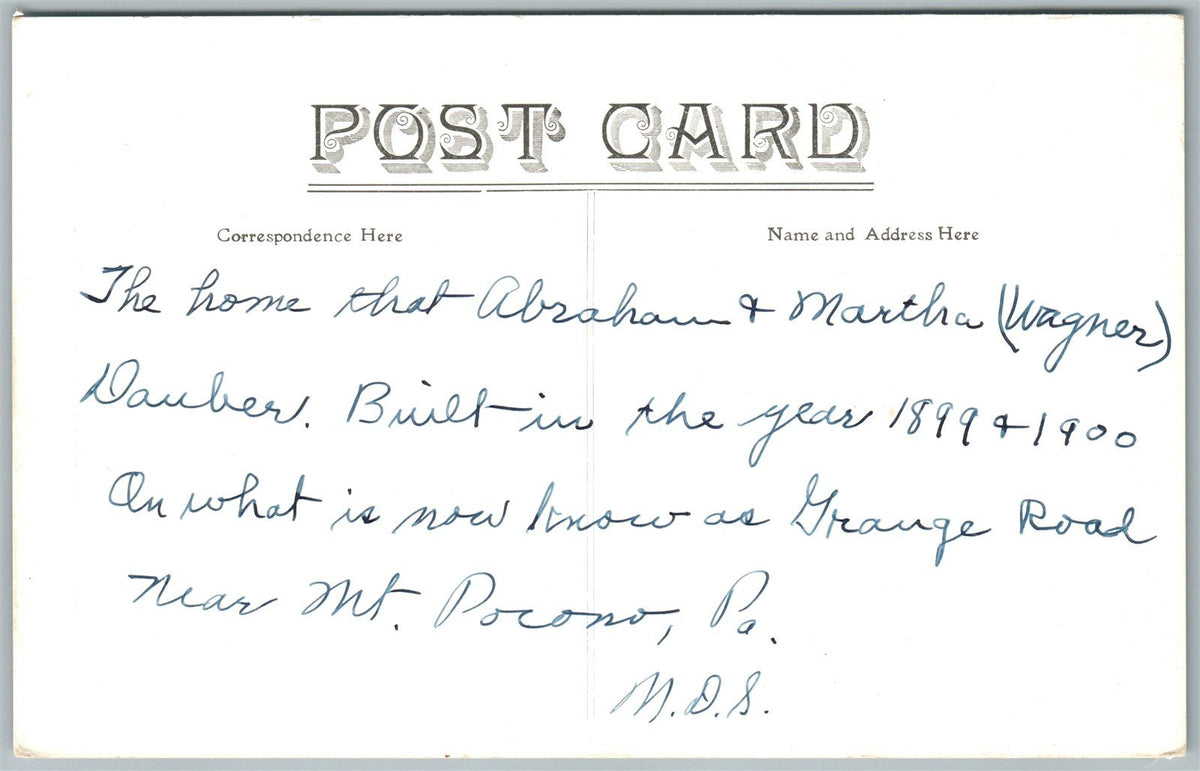 POST CARD
Correspondence Here
Name and Address Here
The home that Abraham & Martha (Wagner)
Dauber. Built in the year 1899 & 1900
On what is now know as Grange Road
Near Mt. Pocono, Pa.
M.D.S.